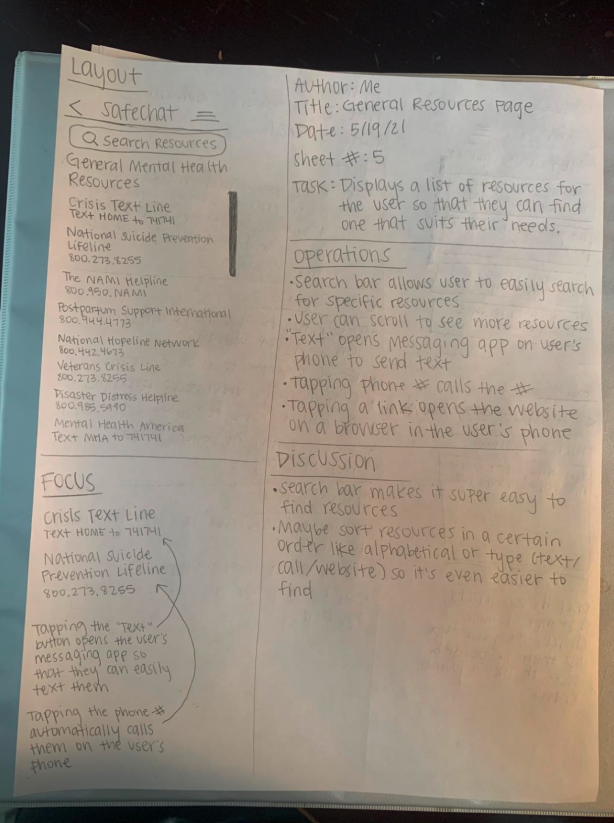 Layout
< Safechat
Search Resources
General Mental Health
Resources
Crisis Text Line
Text HOME to 741741
National Suicide Prevention
Lifeline
800.273.8255
The NAMI Helpline
800.950.NAMI
Postpartum Support International
800.944.4773
National Hopeline Network
800.442.4673
Veterans Crisis Line
800.273.8255
Disaster Distress Helpline
800.985.5990
Mental Health America
Text MHA to 741741
Focus
Crisis Text Line
Text HOME to 741741
National Suicide
Prevention Lifeline
800.273.8255
Tapping the "Text"
button opens the user's
messaging app so
that they can easily
text them
Tapping the phone #
automatically calls
them on the user's
phone
Author: Me
Title: General Resources Page
Date: 5/19/21
Sheet #: 5
Task: Displays a list of resources for
the user so that they can find
one that suits their needs.
Operations
• Search bar allows user to easily search
for specific resources
• User can scroll to see more resources
• "Text" opens messaging app on user's
phone to send text
• Tapping phone # calls the #
• Tapping a link opens the website
on a browser in the user's phone
Discussion
• Search bar makes it super easy to
find resources
• Maybe sort resources in a certain
order like alphabetical or type (text/
call/website) so it's even easier to
find